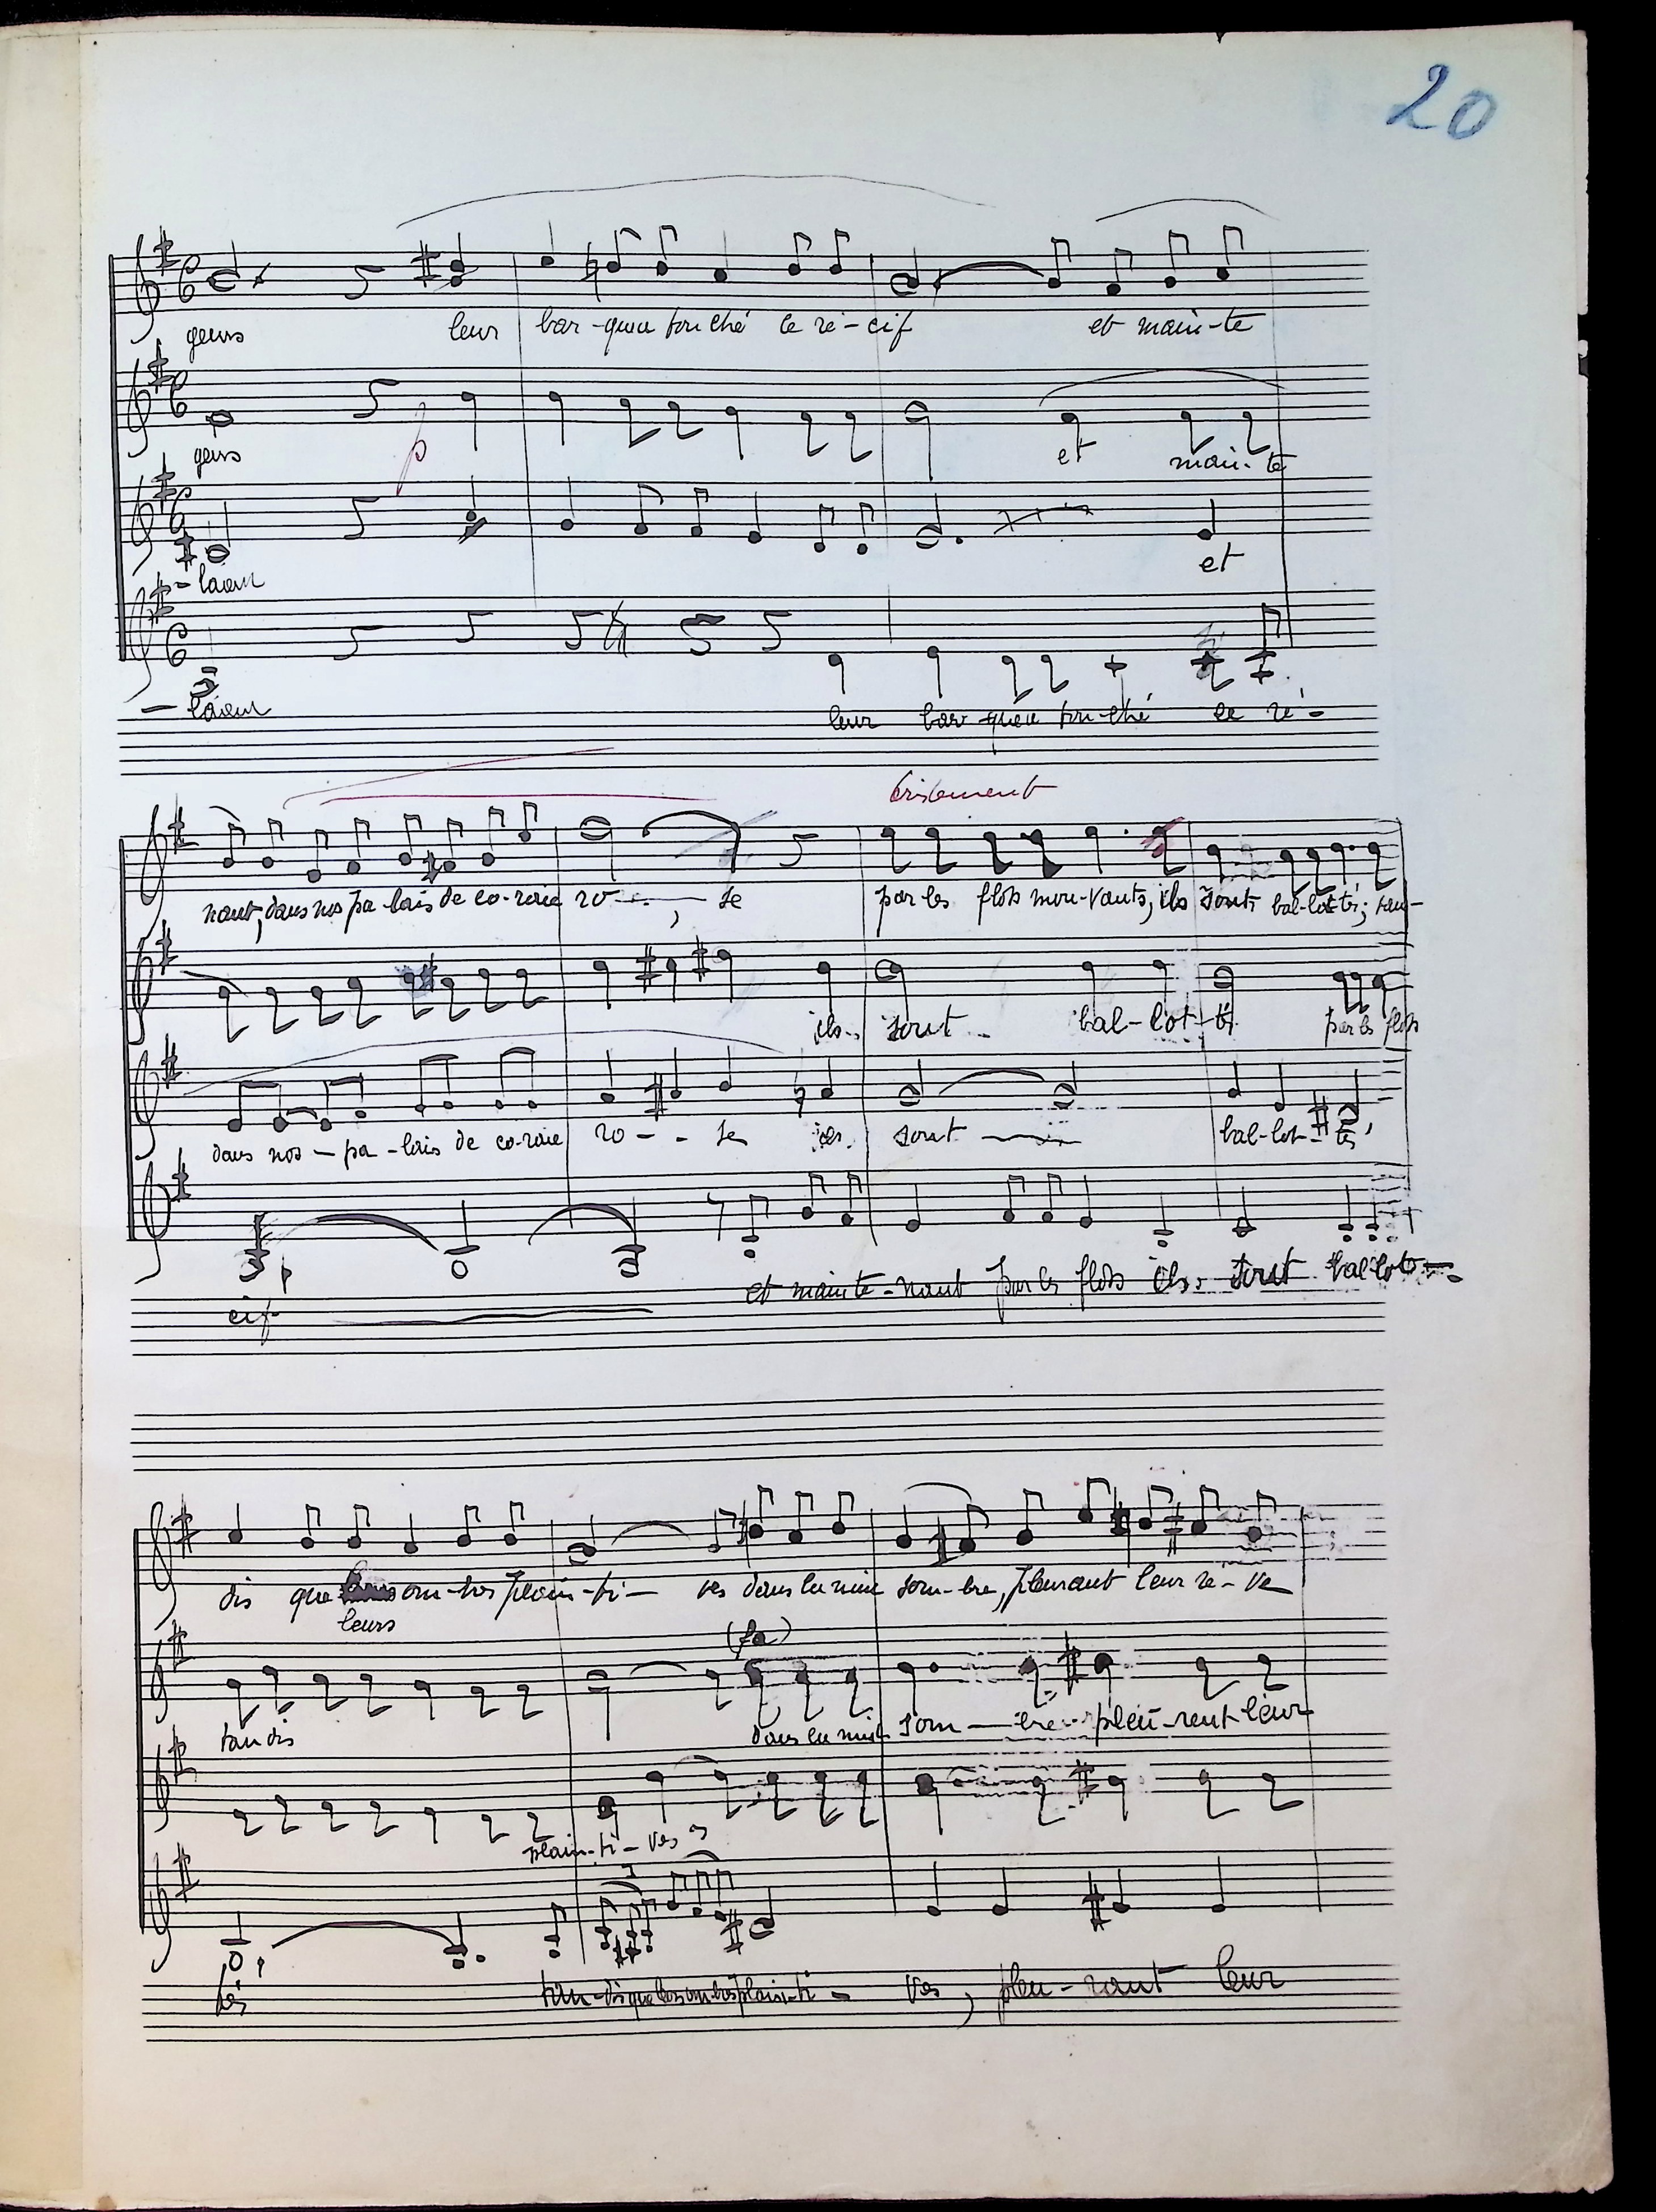 20
geurs leur bar-que a tou ché le ré-cif et main-te
geurs p et main-te
-laient et
-laient leur bar-que a tou-ché le ré-
tristement
nant, dans nos pa-lais de co-raie ro-se par les flots mou-vants, ils sont bal-lot-tés; tan-
ils sont bal-lot-tés par les flots
dans nos-pa-lais de co-raie ro--se ils sont bal-lot-tés,
cif et mainte-nant par les flots ils sont ballots-
dis que om-bres plain-ti-ves dans la nuit som-bre, pleurant leur rê-ve
leurs
(fa)
tan dis dans la nuit som-bre pleu-rent leur
plain-ti-ves
3
tés tan-dis que les ombres plain-ti-ves, pleu-rant leur